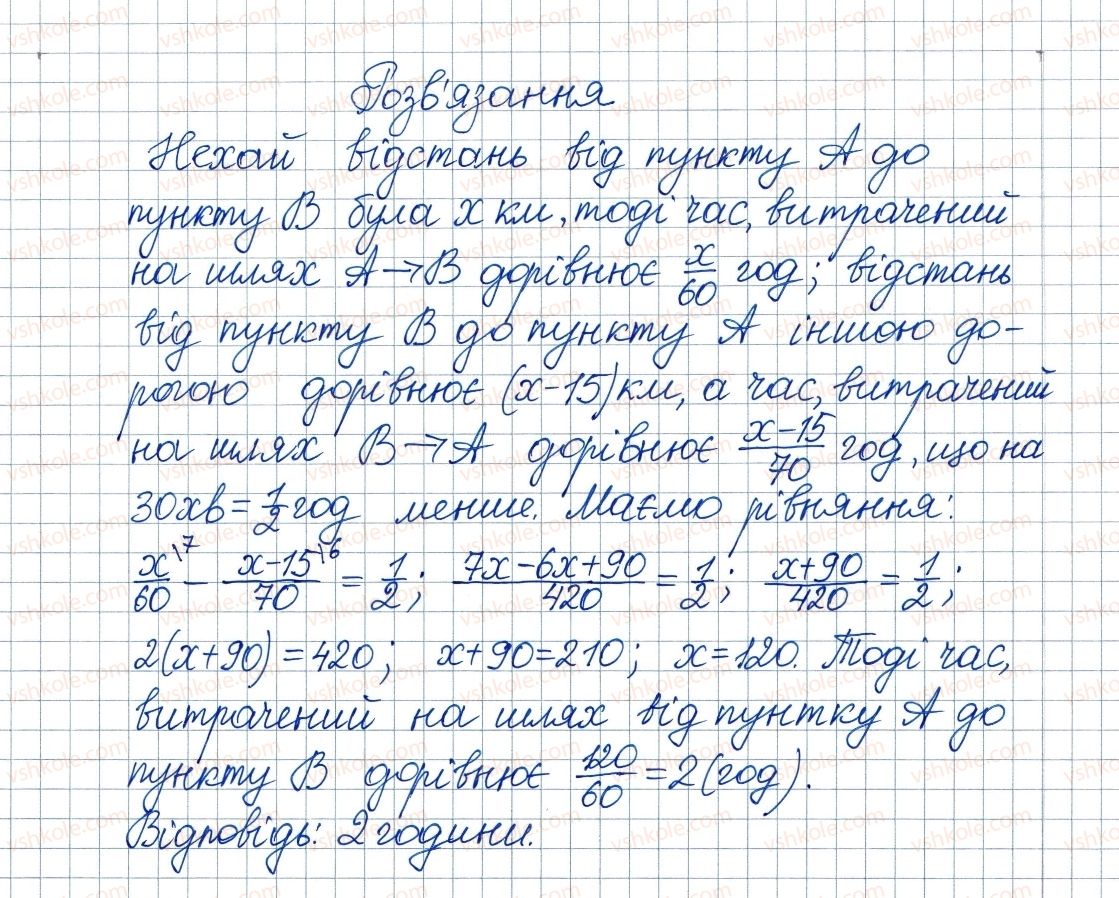 Розв'язання
Нехай відстань від пункту А до
пункту В була х км, тоді час, витрачений
на шлях А→В дорівнює x/60 год; відстань
від пункту В до пункту А іншою до-
рогою дорівнює (х-15) км, а час, витрачений
на шлях В→А дорівнює x-15/70 год, що на
30хв = 1/2 год менше. Маємо рівняння:
x\7/60 - x-15\6/70 = 1/2; 7x-6x+90/420 = 1/2; x+90/420 = 1/2;
2(x+90) = 420; x+90=210; x=120. Тоді час,
витрачений на шлях від пунтку А до
пункту В дорівнює 120/60 = 2 (год).
Відповідь: 2 години.